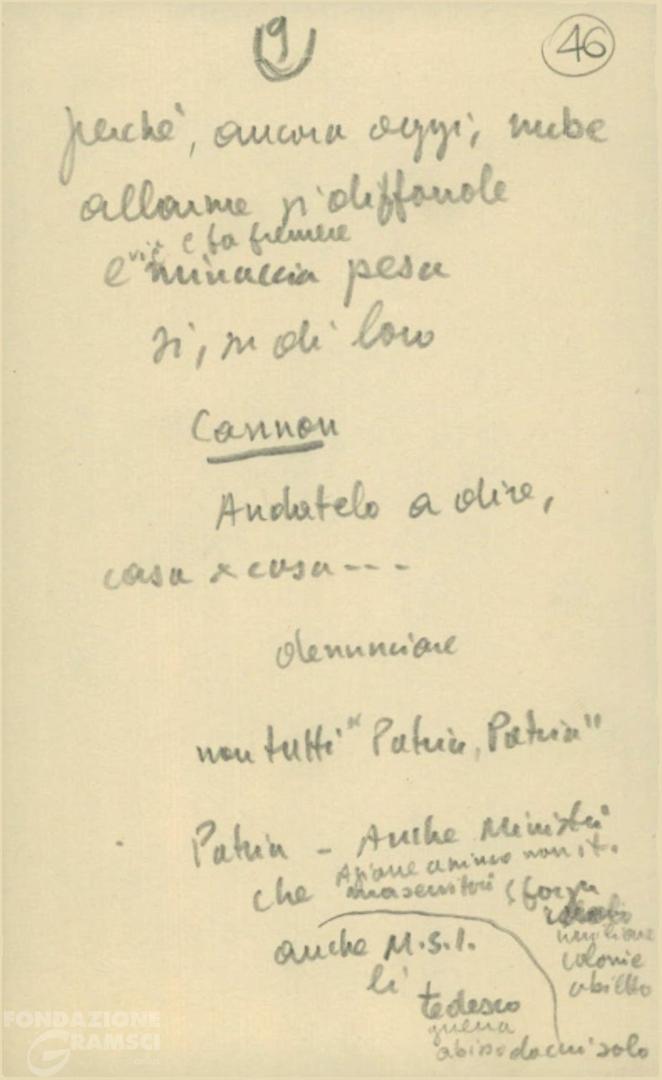 9
46
perchè, ancora oggi, nube
allarme si diffonde
e fa fremere
e minaccia pesa
sì, su di loro
Cannon
Andatelo a dire,
casa x casa ---
denunciare
non tutti "Patria, Patria"
Patria - Anche Ministri
che
ma servitori
anche M.S.I.
lì
tedesco
guerra
abisso da cui solo
umiliare
colonie
abietto
FONDAZIONE
GRAMSCI